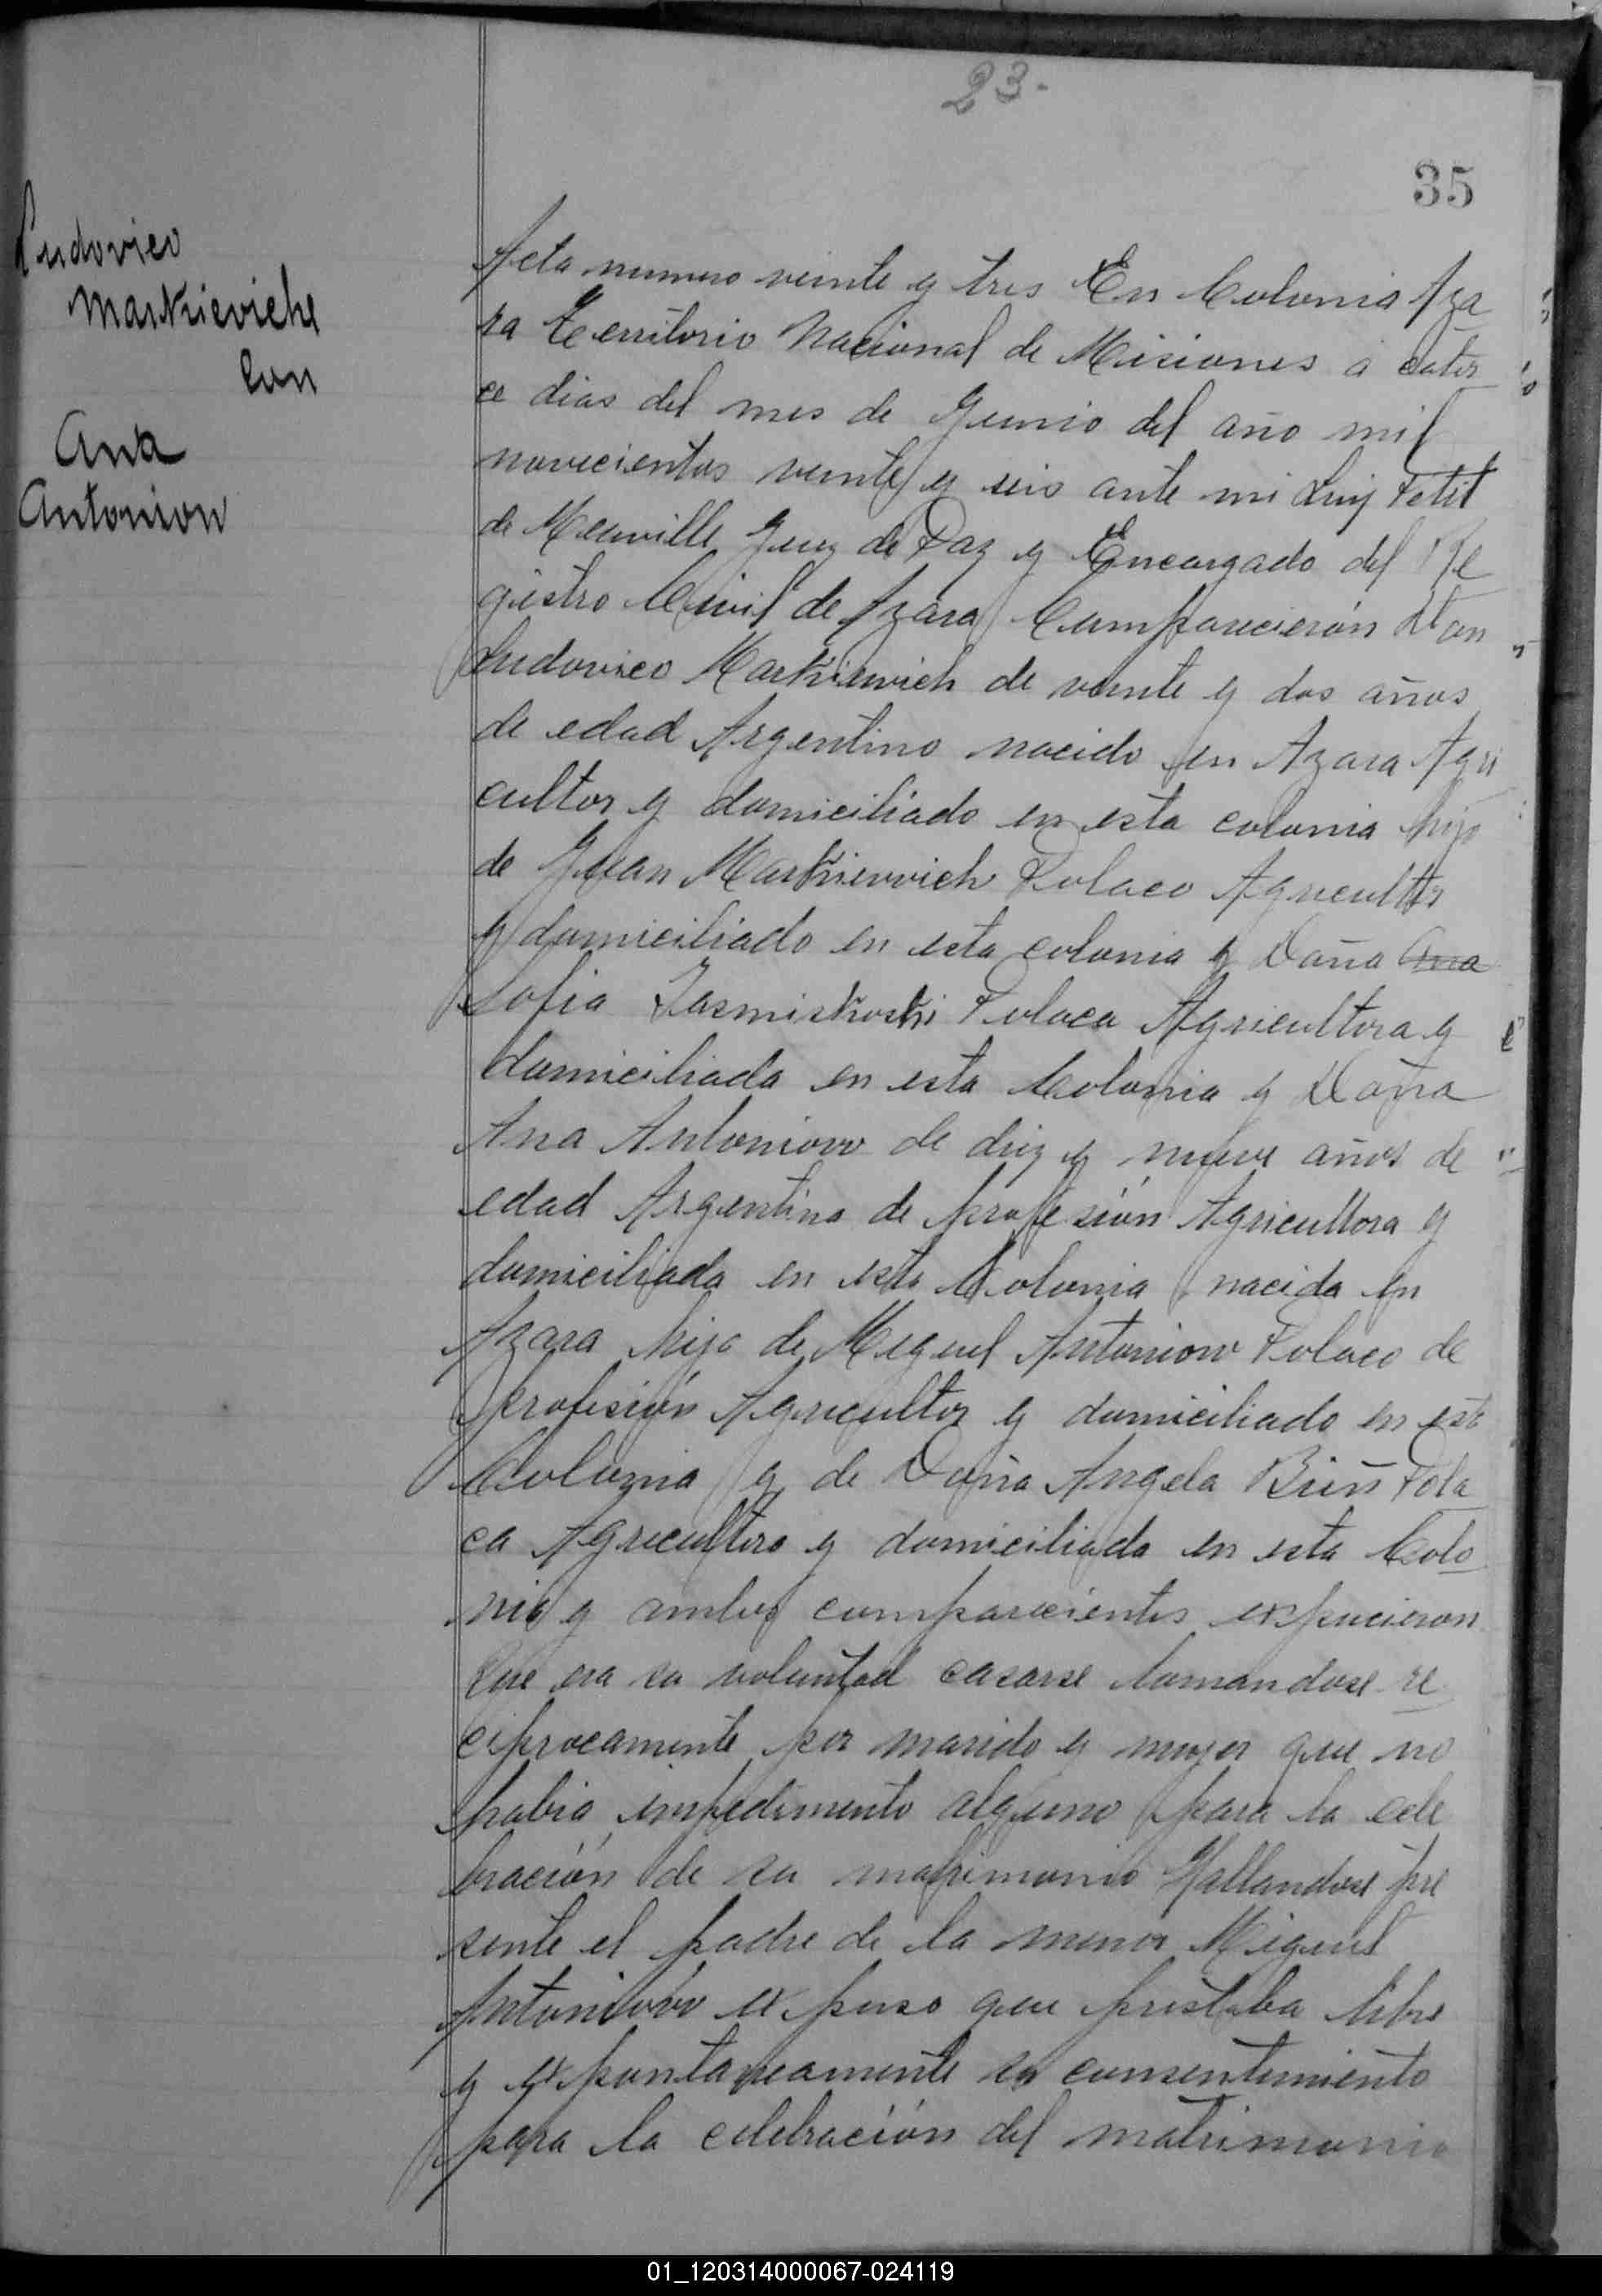 23.
35
Ludovico
Markieviche
con
Ana
Antoniow
Acta numero veinte y tres En Colonia Aza
ra Territorio Nacional de Misiones á cator
ce dias del mes de Junio del año mil
novecientos veinte y seis ante mi Luis Petit
de Meurville Juez de Paz y Encargado del Re
gistro Civil de Azara Comparecierón Don
Ludovico Markiewich de veinte y dos años
de edad Argentino nacido en Azara Agri
cultor y domiciliado en esta colonia hijo
de Juan Markiewich Polaco Agricultor
y domiciliado en esta colonia y Doña Ana
Sofia Jasmiskoski Polaca Agricultora y
domiciliada en esta Colonia y Doña
Ana Antoniow de diez y nueve años de
edad Argentina de profesión Agricultora y
domiciliada en esta Colonia nacida en
Azara hija de Miguel Antoniow Polaco de
profesión Agricultor y domiciliado en esta
Colonia y de Doña Angela Bień Pola
ca Agricultora y domiciliada en esta Colo
nia y ambos comparecientes expucieron
Que era su voluntad casarse tomandose re
ciprocamente por marido y mujer que no
habia impedimento alguno para la cele
bración de su matrimonio Hallandose pre
sente el padre de la menor Miguel
Antoniów expuso que prestaba libre
y expontaneamente su consentimiento
para la celebración del matrimonio
01_120314000067-024119